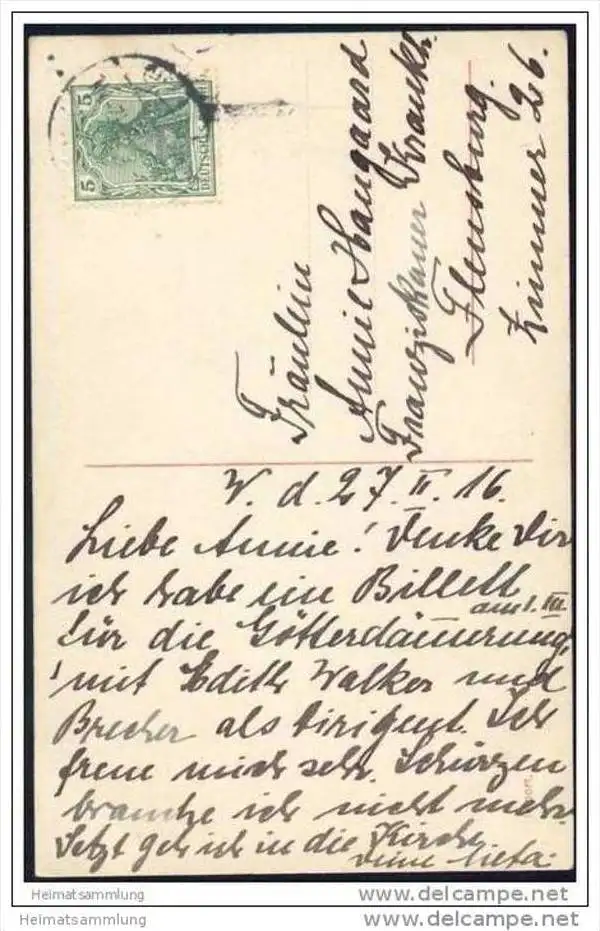 5
5
DEUTSCHES
Fräulein
Annie Haugaard
Franziskaner Krankh.
Flensburg.
Zimmer 26.
W. d. 27. II. 16.
Liebe Annie! Denke Dir
ich habe ein Billett
am 1. III.
für die Götterdämmerung,
mit Edith Walker und
Brecher als Dirigent. Ich
freue mich sehr. Schürzen
brauche ich nicht mehr.
Jetzt geh ich in die Kirche
Deine Meta.
Heimatsammlung
www.delcampe.net
Heimatsammlung
www.delcampe.net